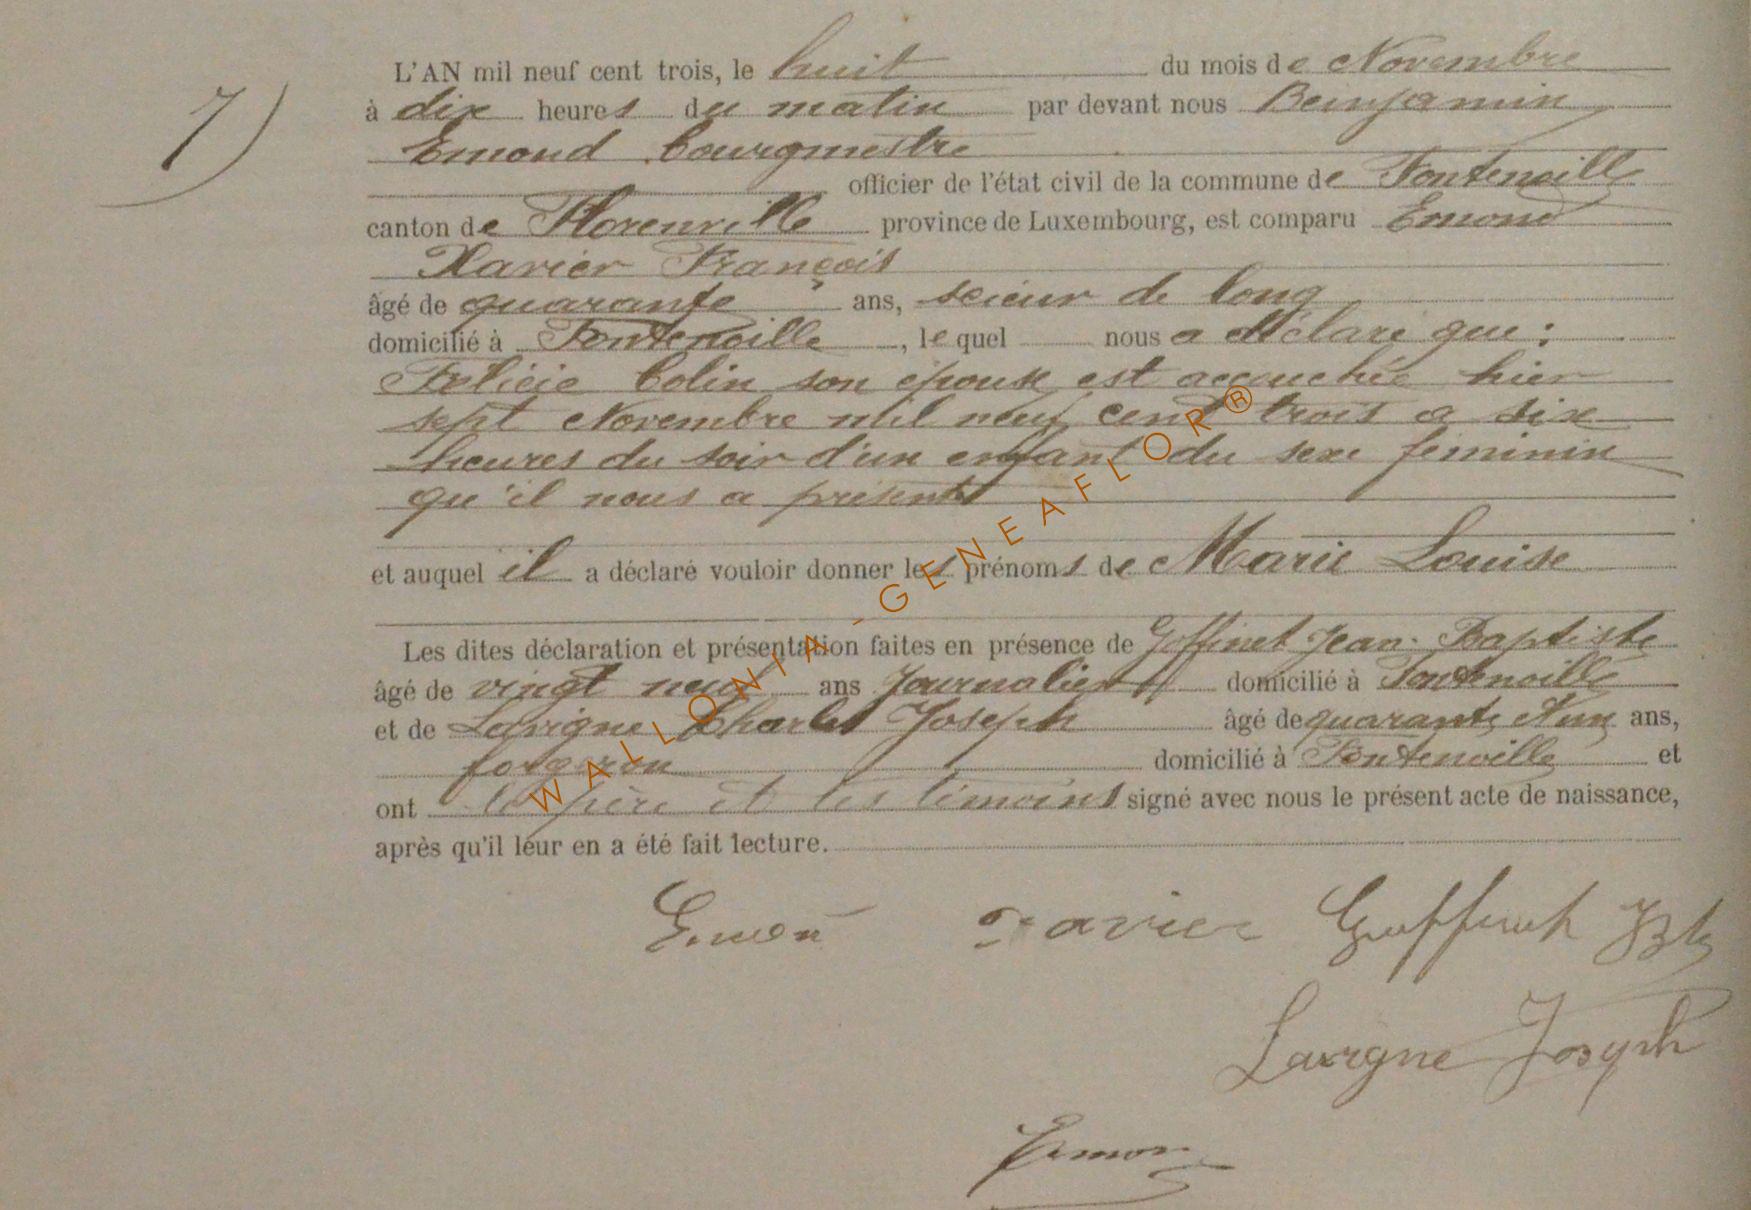 7)
L'AN mil neuf cent trois, le huit du mois de Novembre
à dix heures du matin par devant nous Benjamin
Emond Bourgmestre
officier de l'état civil de la commune de Fontenoille
canton de Florenville province de Luxembourg, est comparu Emond
Xavier François
âgé de quarante ans, scieur de long
domicilié à Fontenoille, lequel nous a déclaré que :
Félicie Colin son épouse est accouchée hier
sept Novembre mil neuf cent trois a six
heures du soir d'un enfant du sexe féminin
qu'il nous a présenté
et auquel il a déclaré vouloir donner les prénoms de Marie Louise
Les dites déclaration et présentation faites en présence de Goffinet Jean-Baptiste
âgé de vingt neuf ans Journalier domicilié à Fontenoille
et de Lavigne Charles Joseph âgé de quarante et un ans,
forgeron domicilié à Fontenoille et
ont le père et les témoins signé avec nous le présent acte de naissance,
après qu'il leur en a été fait lecture.
Emon Xavier Goffinet JBte
Lavigne Joseph
Emon
WALLONIA-GENEAFLOR®